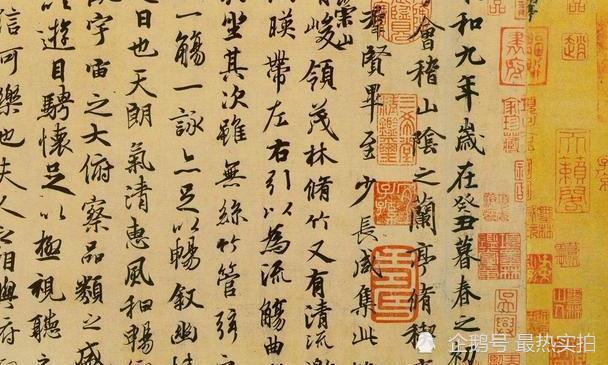 和九年歲在癸丑暮春之初
會稽山陰之蘭亭脩稧
羣賢畢至少長咸集此
崇山
有峻領茂林脩竹又有清流激
暎帶左右引以為流觴曲
坐其次雖無絲竹管弦
一觴一詠亦足以暢叙幽情
日也天朗氣清惠風和暢
宇宙之大俯察品類之盛
以遊目騁懷足以極視聽之
信可樂也夫人之相與俯
趙
天籟閣
家珍藏
企鹅号 最热实拍